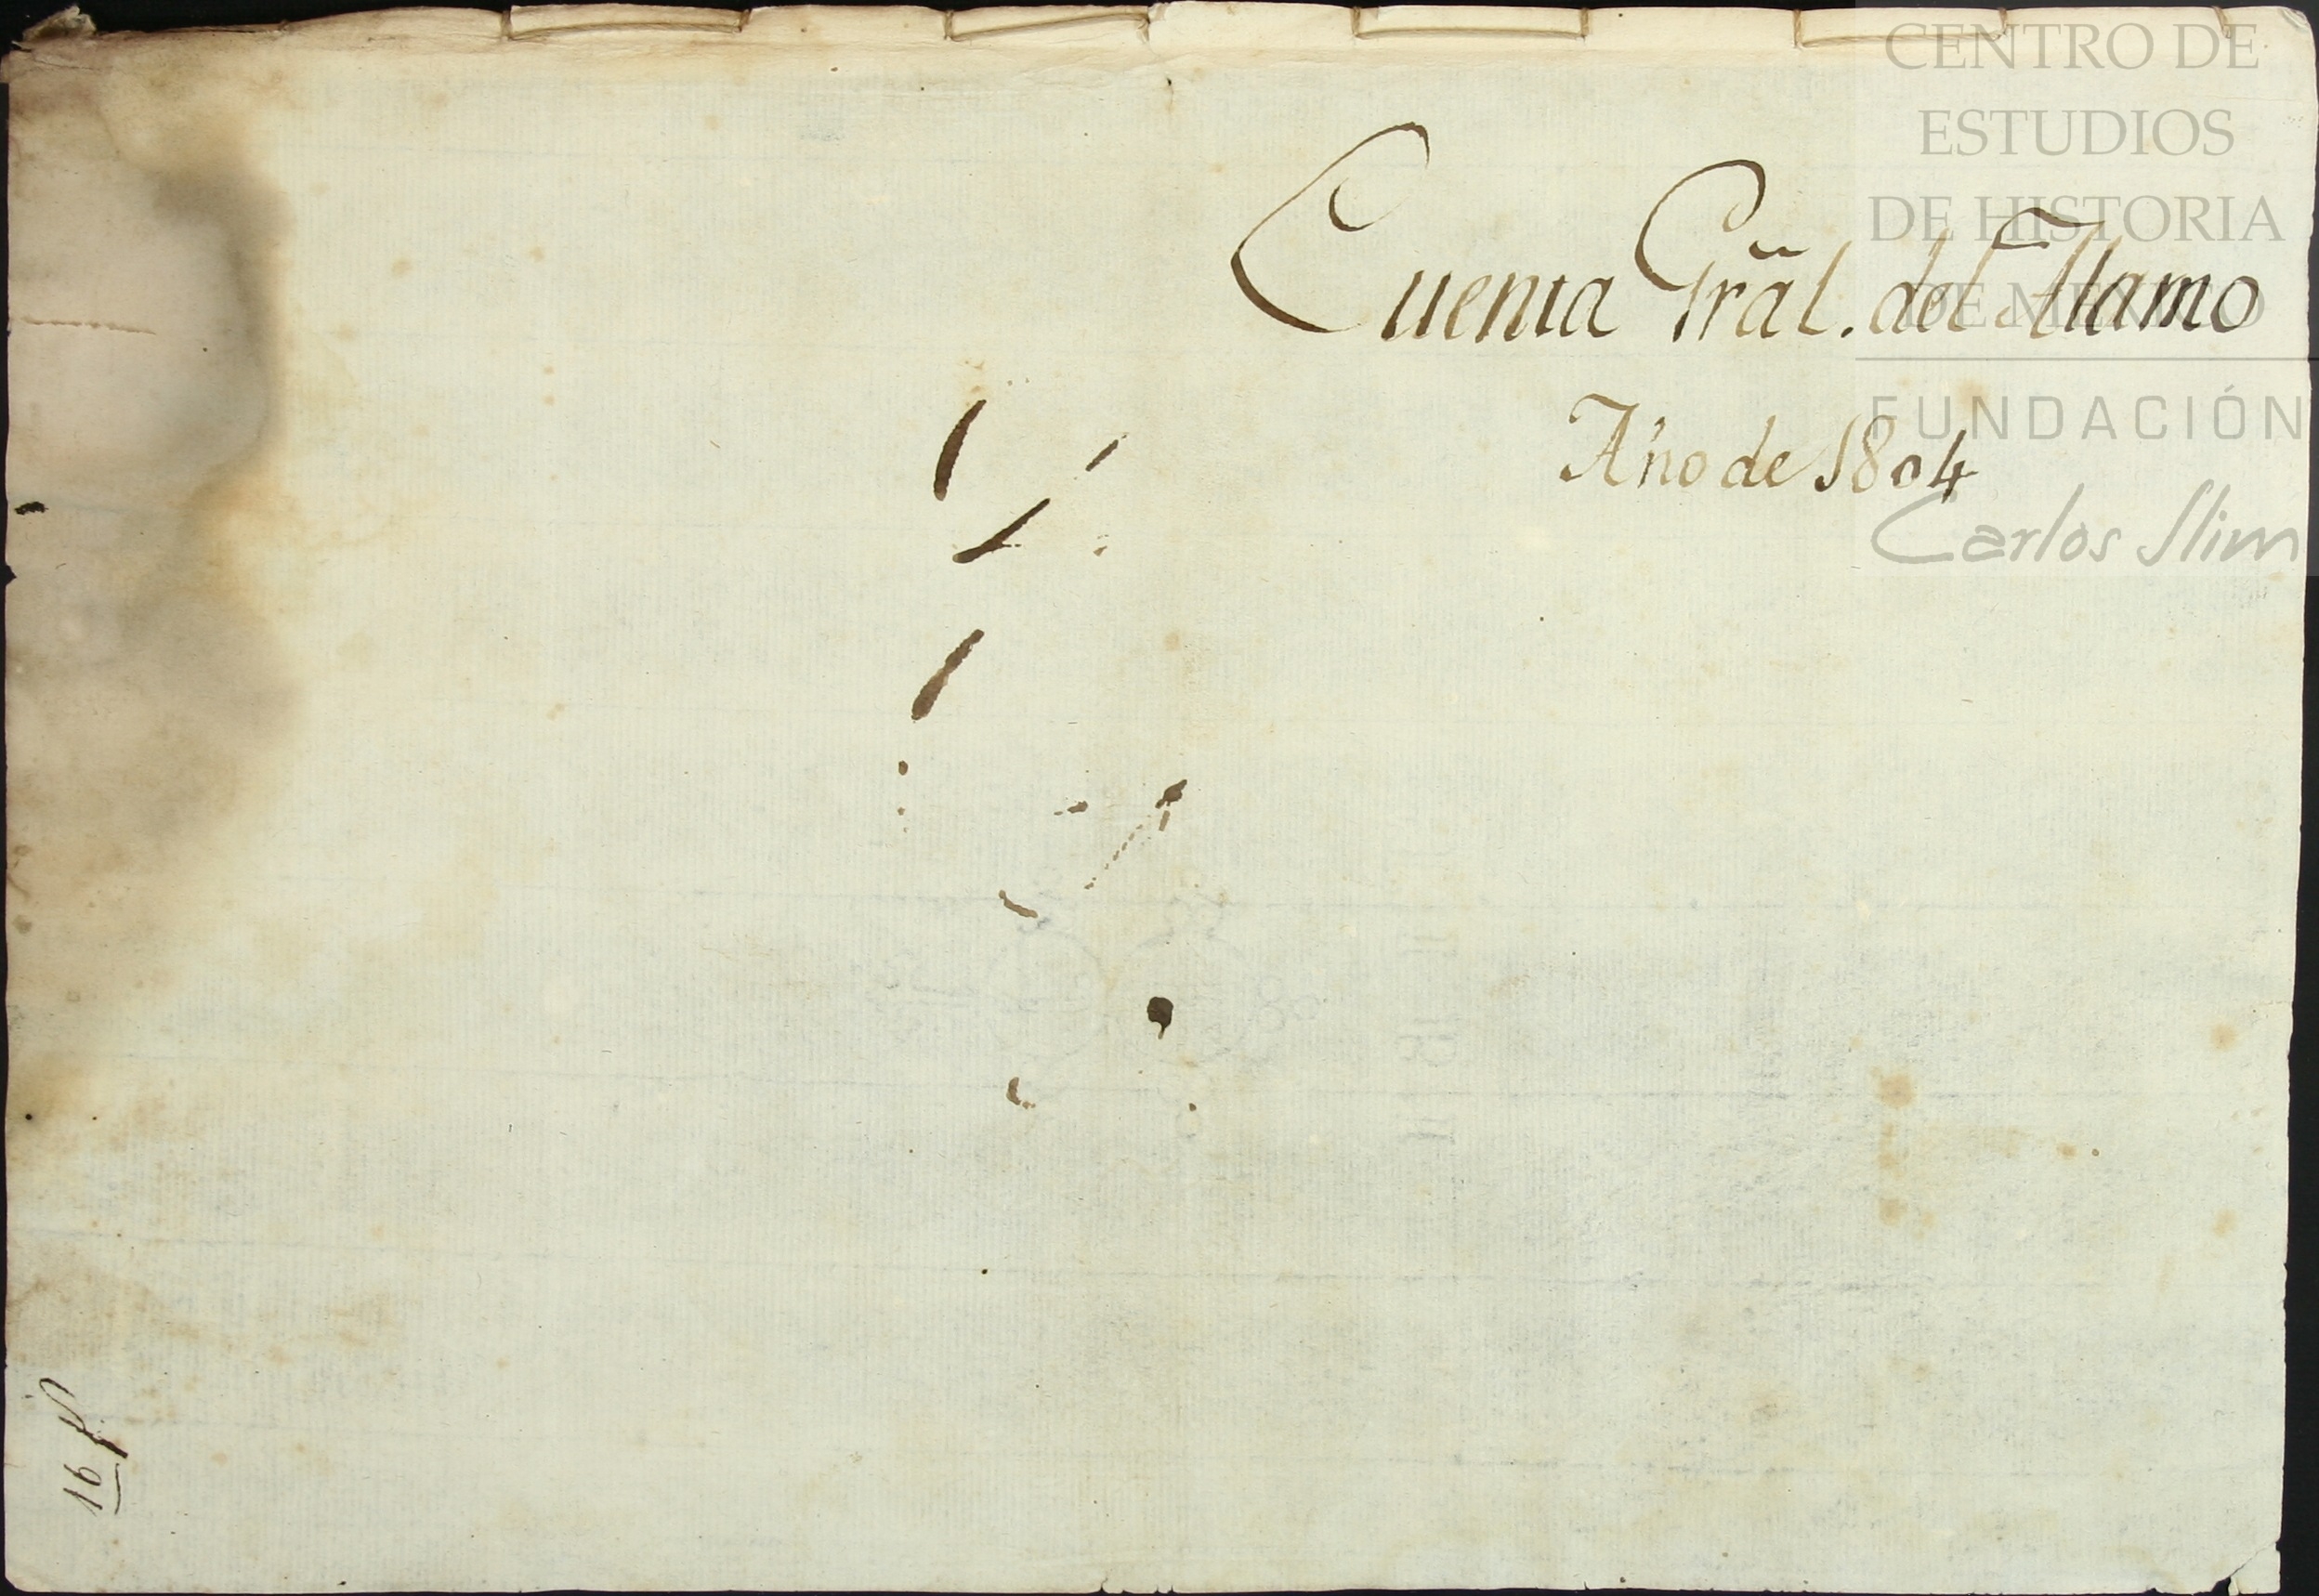 CENTRO DE
ESTUDIOS
DE HISTORIA
DE MÉXICO
FUNDACIÓN
Carlos Slim
Cuenta Grãl. del Alamo
Año de 1804
16